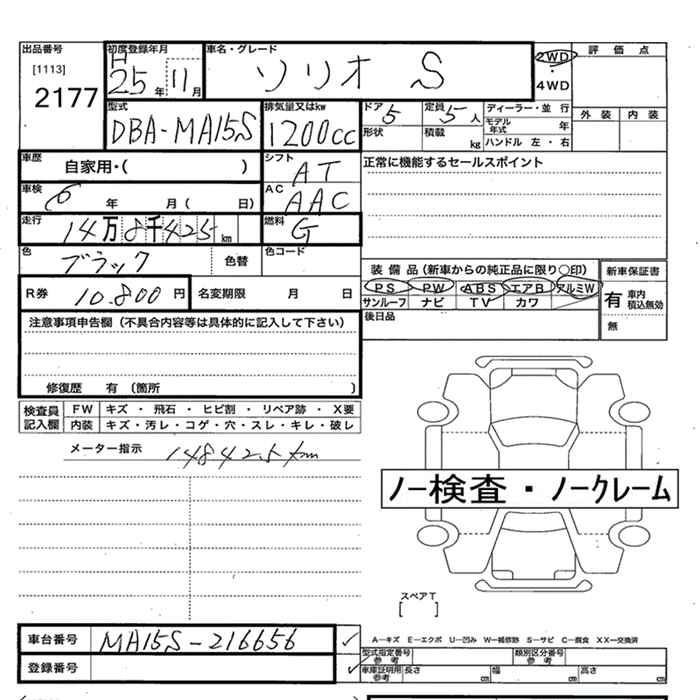 出品番号
[1113]
2177
初度登録年月
H
25年 11月
車名・グレード
ソリオ S
2WD
・
4WD
評価点
外装 内装
型式
DBA-MA15S
排気量又はkw
1200cc
ドア 5
定員 5人
形状
積載 kg
ディーラー・並行
モデル年式 年
ハンドル 左・右
車歴
自家用・( )
シフト
AT
正常に機能するセールスポイント
車検
年 月( 日)
AC
AAC
走行
14万8千425km
燃料
G
色
ブラック
色替
色コード
R券
10.800円
名変期限 月 日
装備品(新車からの純正品に限り○印)
PS PW ABS エアB アルミW
サンルーフ ナビ TV カワ
後日品
新車保証書
有 車内積込無効
無
注意事項申告欄(不具合内容等は具体的に記入して下さい)
修復歴 有 (箇所 )
検査員記入欄
FW キズ・飛石・ヒビ割・リペア跡・X要
内装 キズ・汚レ・コゲ・穴・スレ・キレ・破レ
メーター指示 148425km
ノー検査・ノークレーム
スペアT
[ ]
車台番号 MA15S-216656
登録番号
A-キズ E-エクボ U-凹み W-補修跡 S-サビ C-腐食 XX-交換済
型式指定番号
参考
類別区分番号
参考
車庫証明用参考 長さ cm 幅 cm 高さ cm